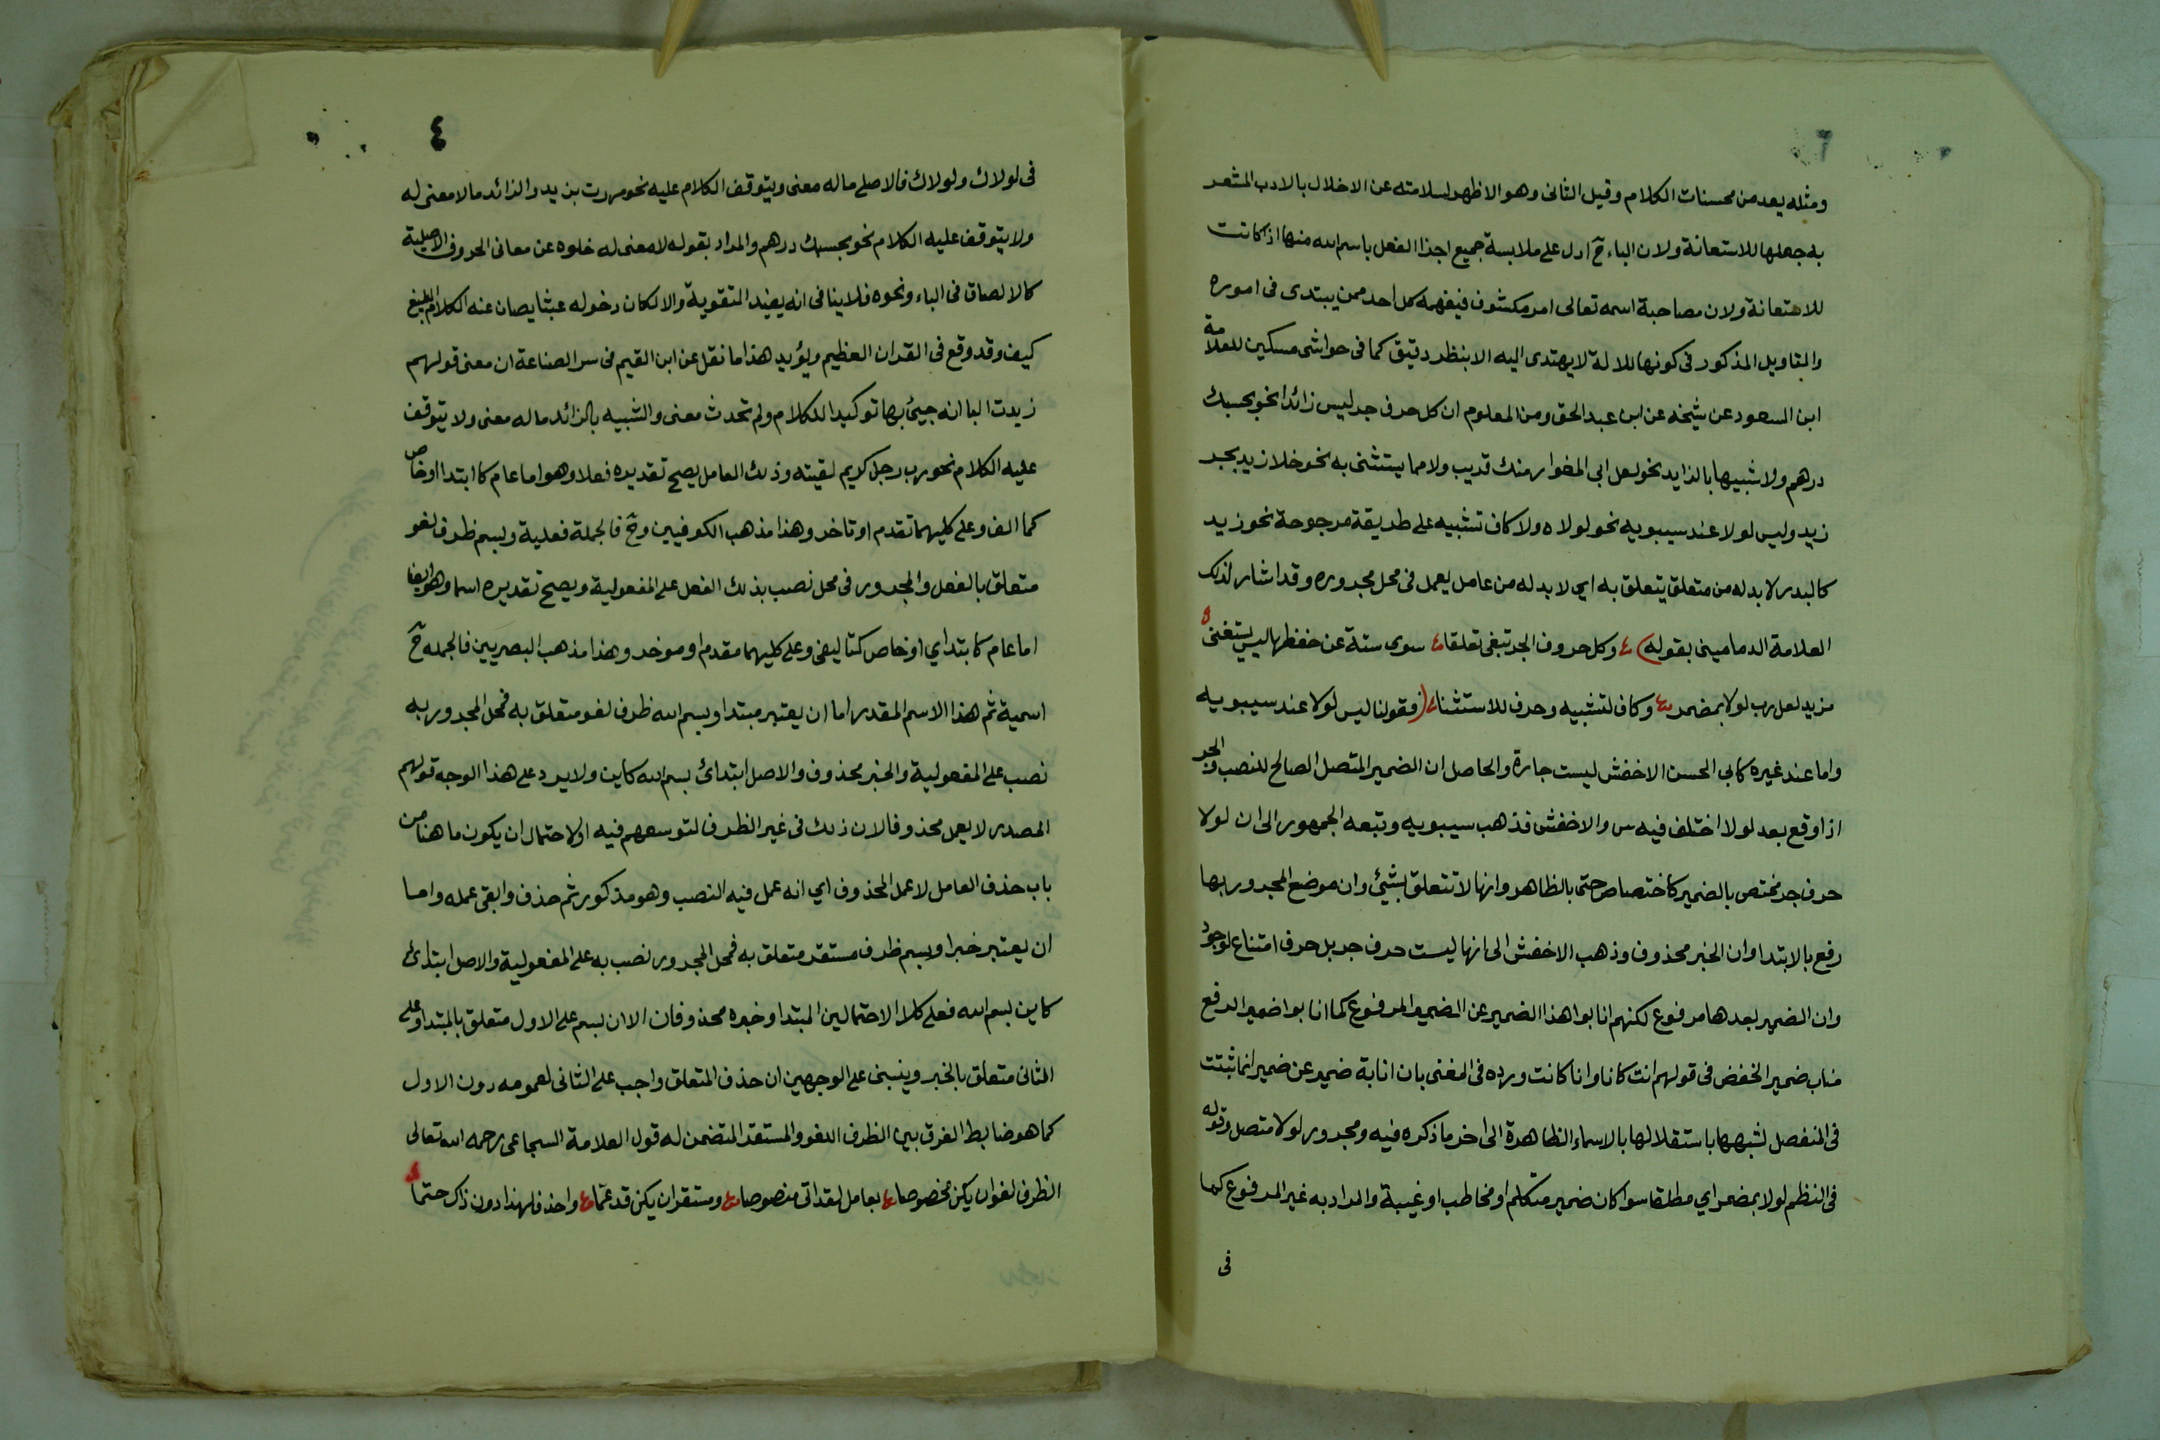 ومثله يعد من محسنات الكلام وقيل الثانى وهو الاظهر لسلامته عن الاخلال بالادب المشعر
به جعلها للاستعانة ولان الباء ح ادل على ملابسة جميع اجذا الفعل باسم الله منها اذا كانت
للاستعانة ولان مصاحبة اسمه تعالى امر مكشوف فيفهمه كل احد ممن يبتدى فى اموره
والتاويل المذكور فى كونها للالة لا يهتدى اليه الا بنظر دقيق كما فى حواشى مسكين للعلامة
ابن السعود عن شيخه عن ابن عبد الحق ومن المعلوم ان كل حرف جر ليس زائدا نحو بحسبك
درهم ولا شبيها بالزايد نحو لعل ابى المغوار منك قريب ولا مما يستثنى به نحو خلا زيد بجر
زيد وليس لولا عند سيبويه نحو لولاه ولا كاف تشبيه على طريقة مرجوحة نحو زيد
كالبدر لا بد له من متعلق يتعلق به اي لا بد له من عامل يعمل فى محل مجروره وقد اشار لذلك
العلامة الدمامينى بقوله وكل حروف الجر تبغى تعلقا سوى ستة عن حفظها ليس يستغنى
مزيد لعل رب لولا بمضمر وكاف لتشبيه وحرف للاستثنا فقولنا ليس لولا عند سيبويه
واما عند غيره كابي الحسن الاخفش ليست جارة والحاصل ان الضمير المتصل الصالح للنصب والجر
اذا وقع بعد لولا اختلف فيه س والاخفش فذهب سيبويه وتبعه الجمهور الى ان لولا
حرف جر مختص بالضمير كاختصاص حتى بالظاهر وانها لا تتعلق بشيئ وان موضع المجرور بها
رفع بالابتدا وان الخبر محذوف وذهب الاخفش الى انها ليست حرف جر بل حرف امتناع لوجود
وان الضمير بعدها مرفوع لكنهم انابوا هذا الضمير عن الضمير المرفوع كما انابوا ضمير الرفع
مناب ضمير الخفض فى قولهم انت كانا وانا كانت ورده فى المغنى بان انابة ضمير عن ضمير انما ثبتت
فى المنفصل لشبهها باستقلالها بالاسماء الظاهرة الى اخر ما ذكره فيه ومجرور لولا متصل وقوله
فى النظم لولا بمضمر اي مطلقا سوا كان ضمير متكلم او مخاطب او غيبة والمراد به غير المرفوع كما
فى
٤
فى لولاك ولولاك فالاصلے ماله معنى ويتوقف الكلام عليه نحو مررت بزيد والزائد مالا معنى له
ولا يتوقف عليه الكلام نحو بحسبك درهم والمراد بقوله لا معنى له خلوه عن معانى الحروف الاصلية
كالالصاق فى الباء ونحوه فلا ينافى انه يفيد التقوية والا لكان دخوله عبثا يصان عنه الكلام البليغ
كيف وقد وقع فى القران العظيم ويؤيد هذا ما نقل عن ابن القيم فى سر الصناعة ان معنى قولهم
زيدت البا انه جيئ بها توكيدا للكلام ولم تحدث معنى والشبيه بالزائد ماله معنى ولا يتوقف
عليه الكلام نحو رب رجل كريم لقيته وذلك العامل يصح تقديره فعلا وهو اما عام كابتدا او خاص
كما الف وعلى كليهما تقدم او تاخر وهذا مذهب الكوفيين وح فالجملة فعلية وبسم ظرف لغو
متعلق بالفعل والمجرور فى محل نصب بذلك الفعل على المفعولية ويصح تقديره اسما وهو ايضا
اما عام كابتداي او خاص كتاليفى وعلى كليهما مقدم او موخر وهذا مذهب البصريين فالجمله ح
اسمية ثم هذا الاسم المقدر اما ان يعتبر مبتدا وبسم الله ظرف لغو متعلق به فمحل المجرور به
نصب على المفعولية والخبر محذوف والاصل ابتدائ بسم الله كاين ولا يرد على هذا الوجه قولهم
المصدر لا يعمل محذوفا لان ذلك فى غير الظرف لتوسعهم فيه او لاحتمال ان يكون ما هنا من
باب حذف العامل لا عمل المحذوف اي انه عمل فيه النصب وهو مذكور ثم حذف وابقى عمله واما
ان يعتبر خبرا وبسم ظرف مستقر متعلق به فمحل المجرور نصب به على المفعولية والاصل ابتدائ
كاين بسم الله فعلى كلا الاحتمالين المبتدا وخبره محذوفان الا ان بسم على الاول متعلق بالمبتدا وعلى
الثانى متعلق بالخبر وينبنى على الوجهين ان حذف المتعلق واجب على الثانى لعمومه دون الاول
كما هو ضابط الفرق بين الظرف اللغو والمستقر المتضمن له قول العلامة السجاعى رحمه الله تعالى
الظرف لغوان يكن مخصوصا بعامل لقد اتى منصوصا ومستقر ان يكن قد عمّا واحذف لهذا دون ذاك حتما